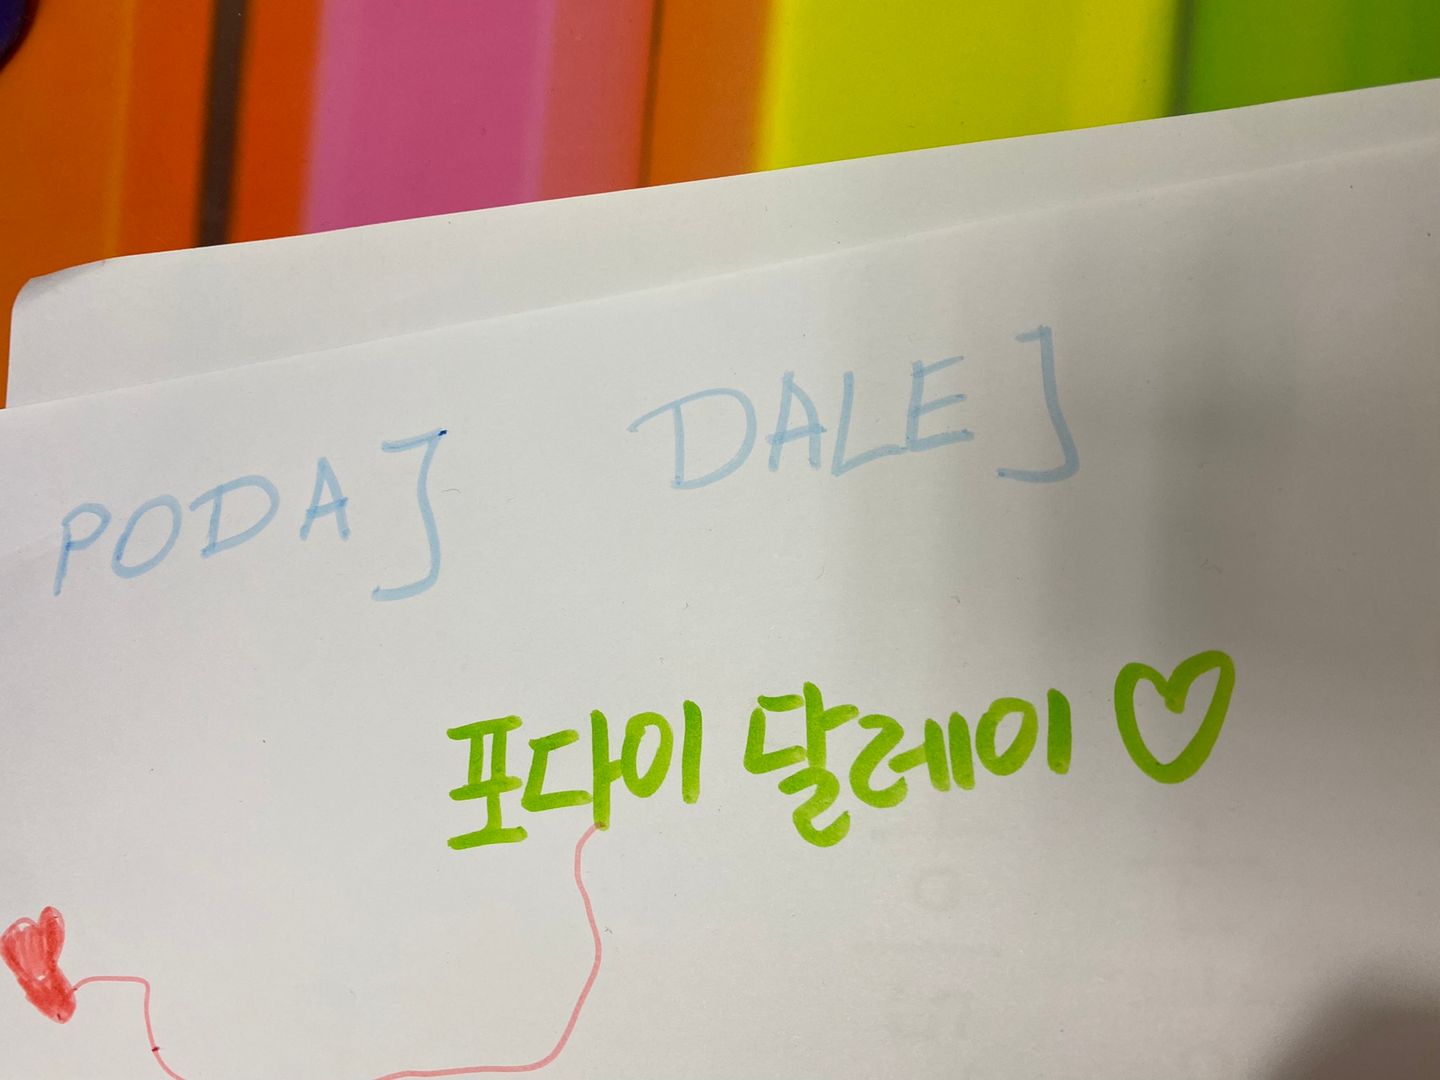 PODAJ DALEJ
포다이 달레이♡